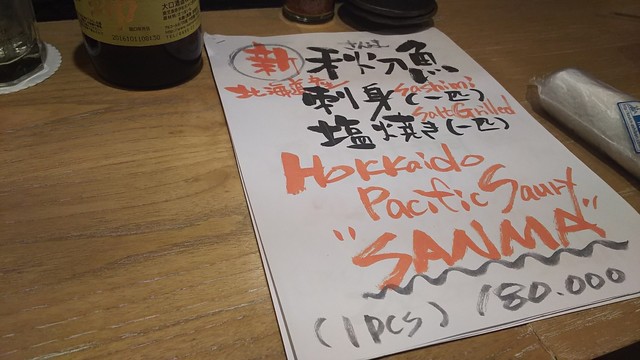 大口酒造
20161011081S2
新 さんま
秋刀魚
北海道産
刺身(一匹) Sashimi
塩焼き(一匹) Salt Grilled
Hokkaido
Pacific Saury
"SANMA"
(1pcs) 180.000